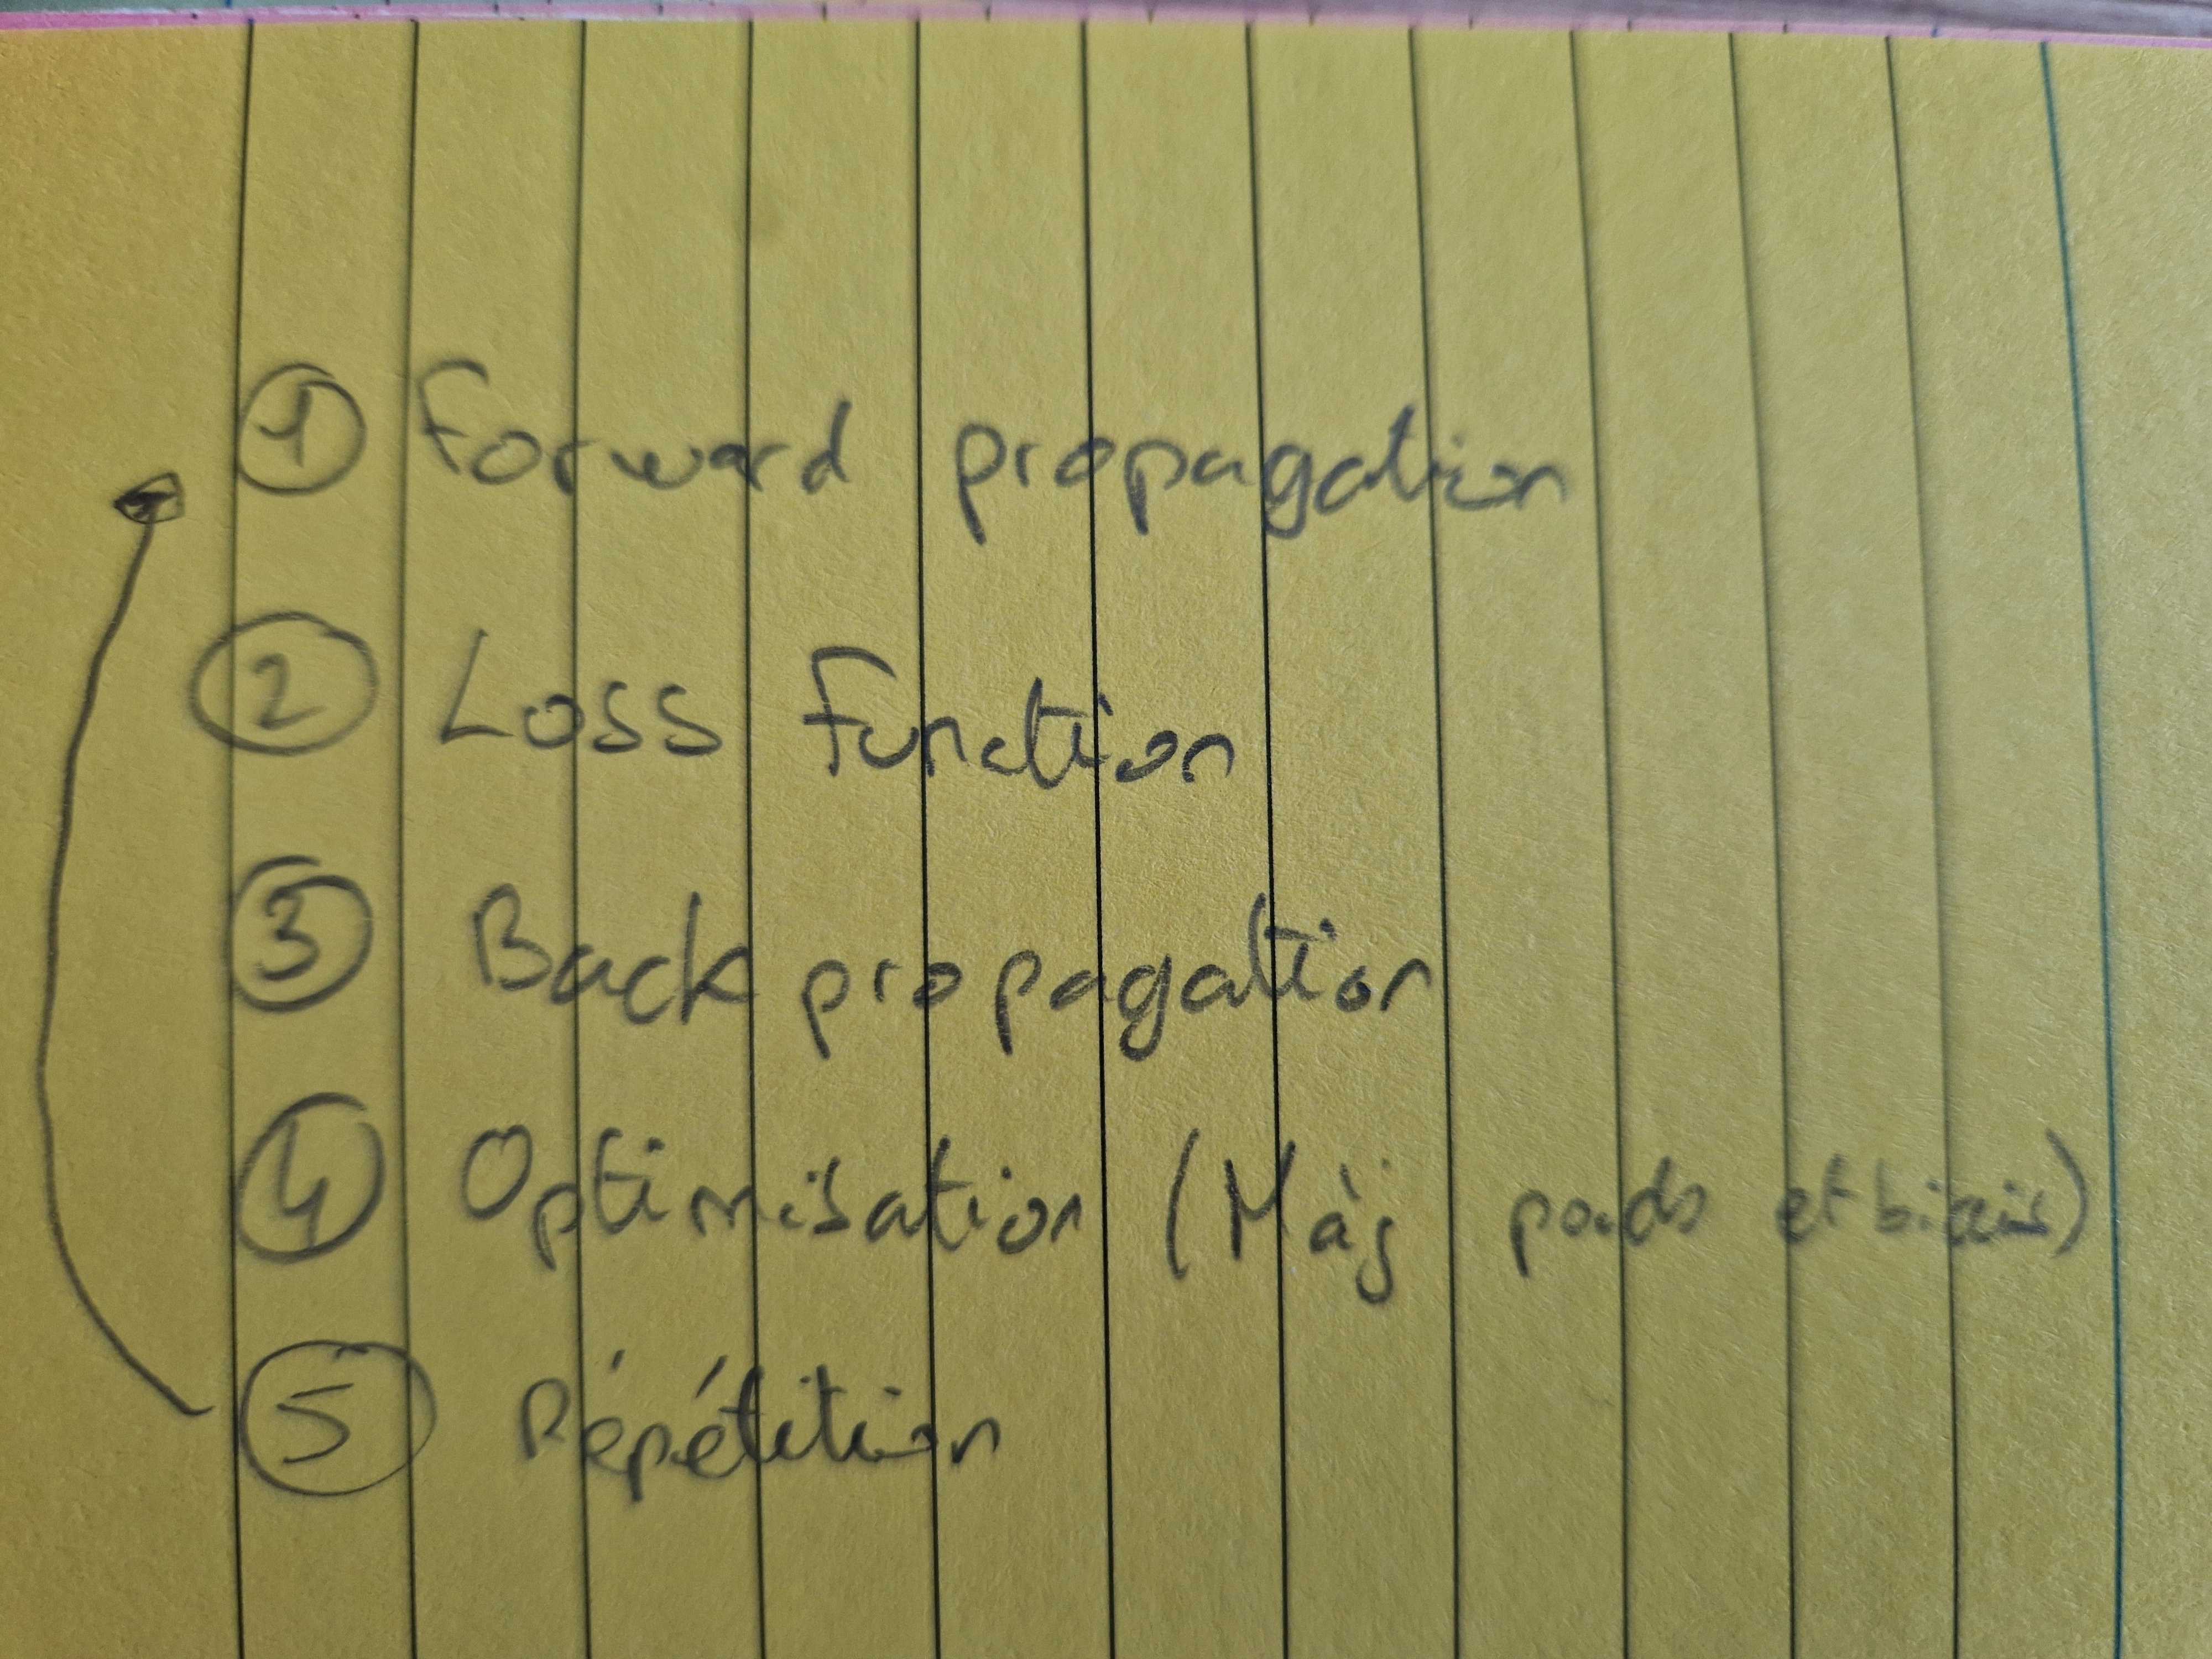 ① Forward propagation
② Loss Function
③ Back propagation
④ Optimisation (Màj poids et biais)
⑤ Répétition